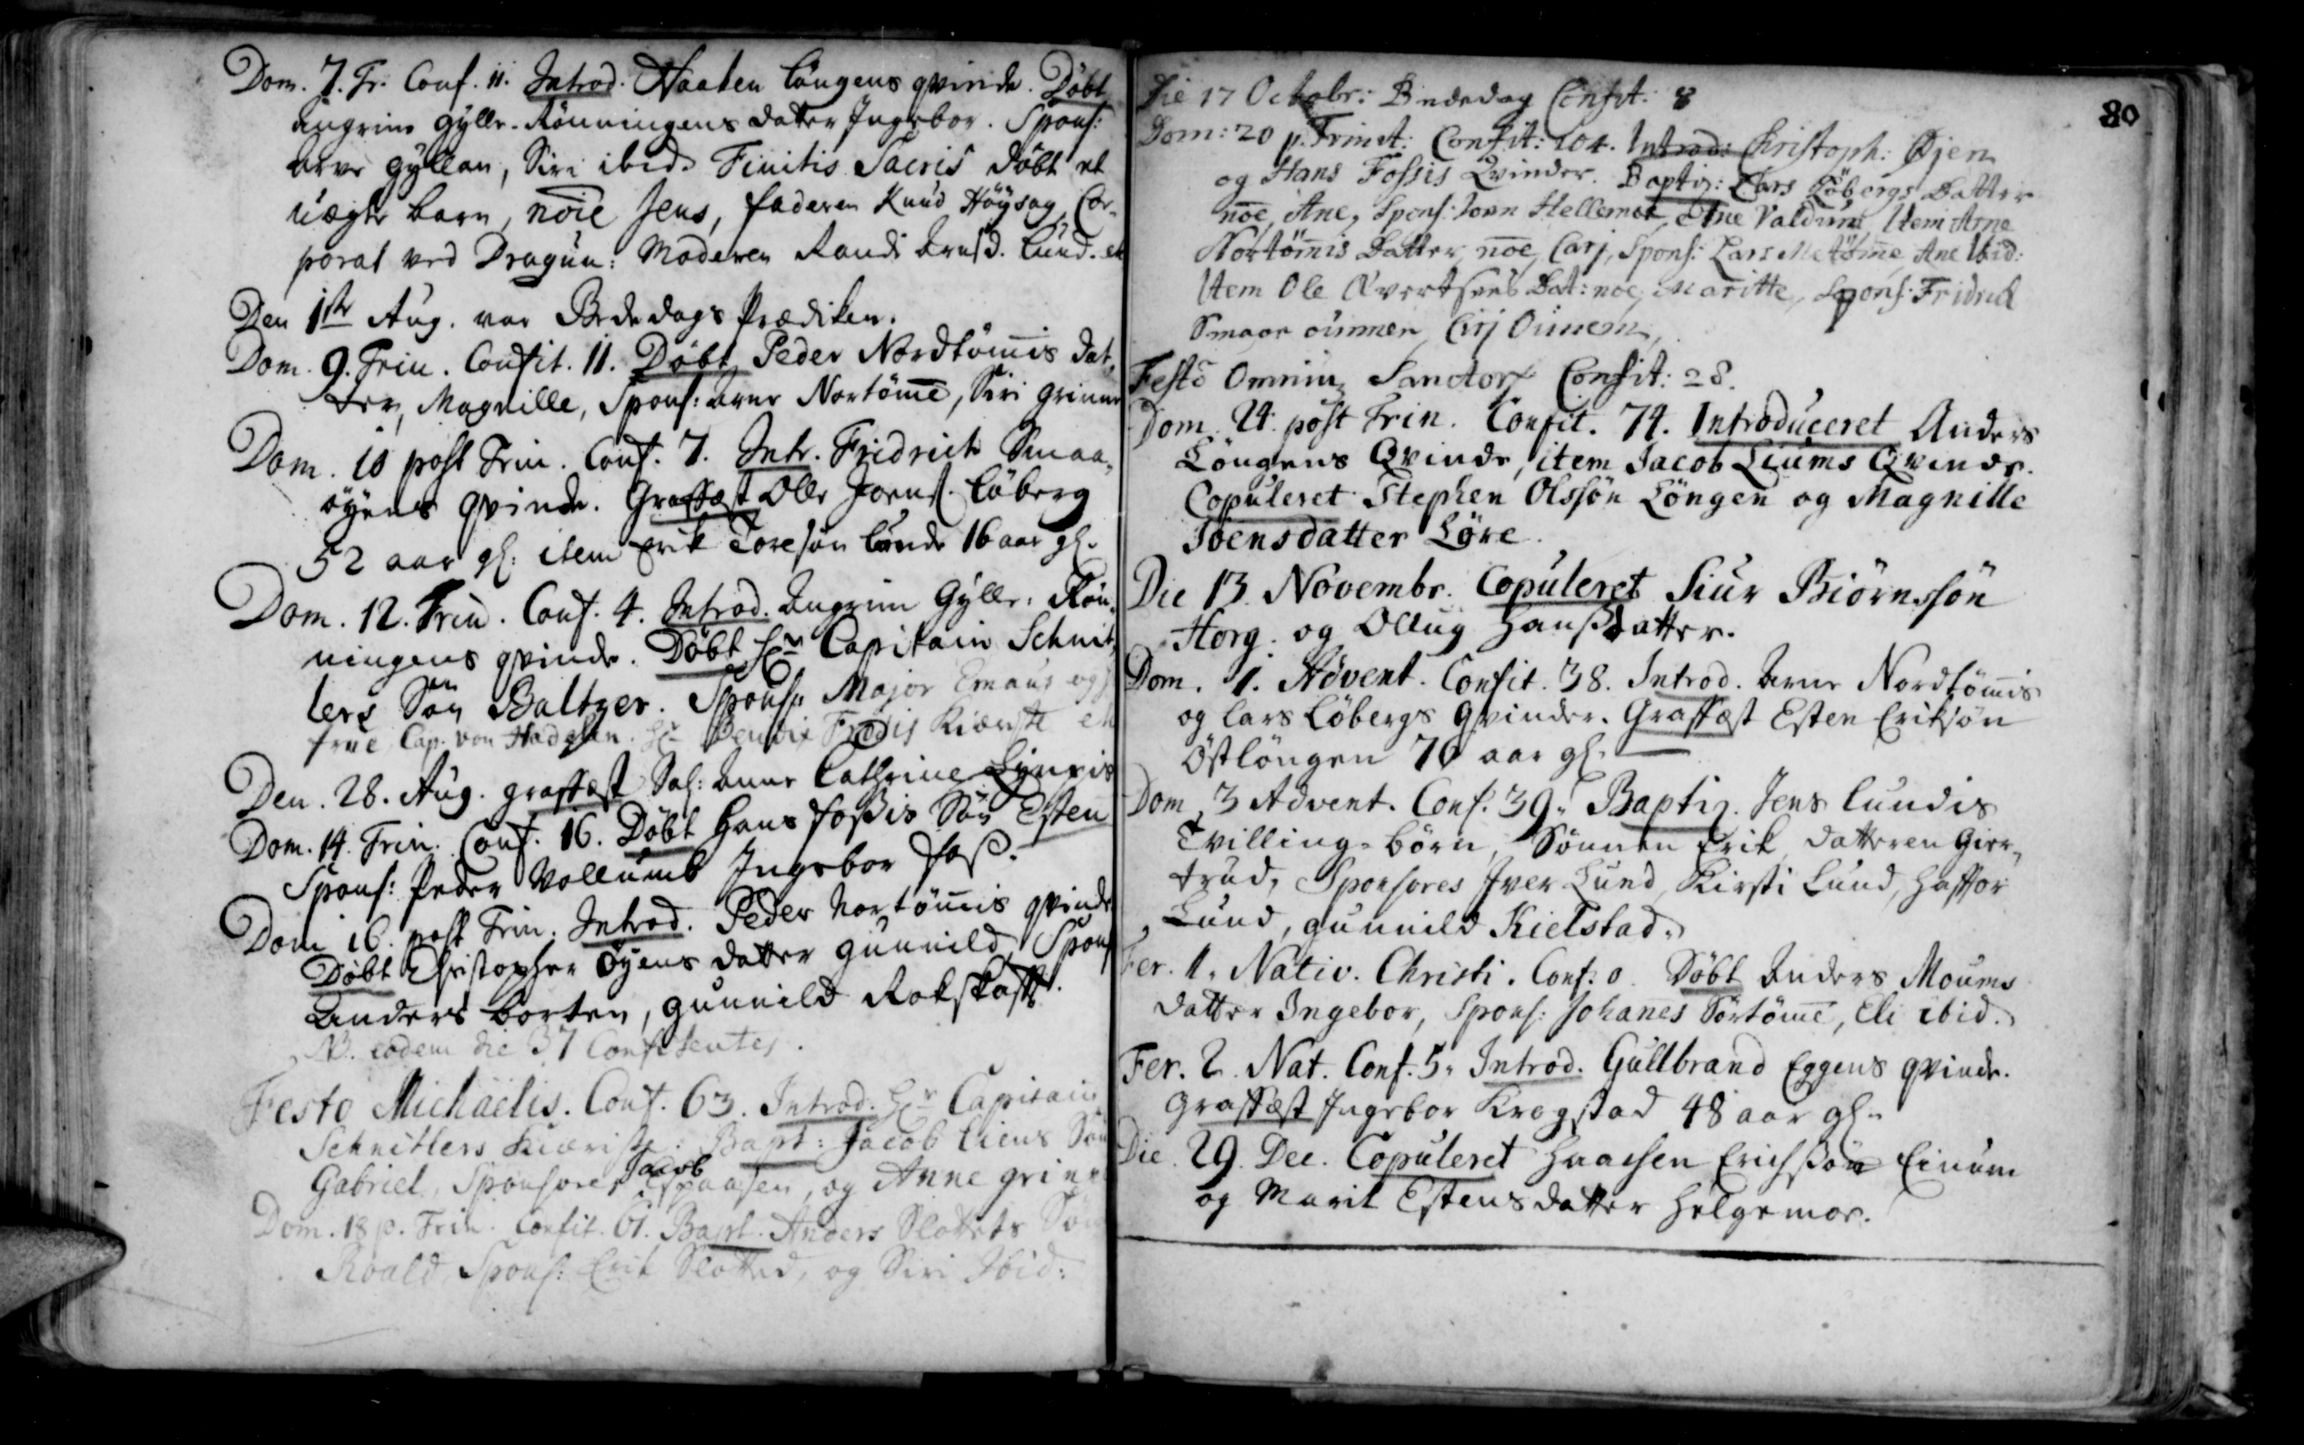 Dom. 7. Tr. Conf. 11. Introd. Haaken Löngens qvinde. Döbt
Angrim Gylle-Rönningens datter Ingebor. Spons:
Arve Gyllan, Siri ibid. Finitis Sacris döbt et
uægte barn, nōie Jens, faderen Knud Höysag, Cor-
poral ved Dragun: Moderen Randi Arnsd. Lund.
Den 1ste Aug. var Bededags Prædiken.
Dom. 9. Trin. Confit. 11. Döbt Peder Nordtöm̄is dat,
ter, Magnille, Spons: Arne Nortöm̄e, Siri Grinne
Dom. 10 post Trin. Conf. 7. Intr. Fridrich Smaa,
öyens qvinde. Graffæst Olle Joens. Löberg
52 aar gl: item Erik Toresön Lunde 16 aar gl.
Dom. 12. Trin. Conf. 4. Introd. Angrim Gylle-Rön,
ningens qvinde. Döbt Hr Capitain Schnit,
lers Sön Baltzer. Spons: Major Emaus og
frue, Cap. von Hadelen. Hr Bendix Kiæreste
Den. 28. Aug. graffæst Sal: Anne Cathrine
Dom. 14. Trin. Conf. 16. Döbt Hans Fossis Sön Esten
Spons: Peder Vollumb Ingebor Foss.
Dom 16. post Trin. Introd. Peder Nortöm̄is qvinde
Döbt Christopher Öyens datter Gunnild, Spons
Anders Borten, Gunnild Rokskafft.
NB. eodem die 37 Confitentes.
Festo Michaelis. Conf. 63. Introd. Hr Capitain
Schnitlers Kiæriste: Bapt: Jacob Liens Sön
Gabriel, Sponsores Jacob Espaasen, og Anne Grinn
Dom. 18 p. Trin. Confit. 61. Bapt. Anders Slottets Sön
Roald, Spons: Erik Slotted, og Siri Ibid:
80
Die 17 Octobr: Bededag Confit: 8
Dom: 20 p. Trinit: Confit: 104. Introd: Christoph: Øjen
og Hans Fossis Qvinder. Baptiz: Lars Löbergs Datter
nōe, Ane, Spons: Joen Hellemoe, Ane Valdum, Item Arne
Nortöm̄is Datter nōe, Carj, Spons: Lars Metöm̄e, Ane Ibid:
Item Ole Evertsens Dat: nōe, Maritte, Spons: Fridrick
Smaaoünmen, Cirj Oünnem,
Festō Omniu Sanctor Confit: 28.
Dom. 24. post Trin. Confit. 74. Introduceret Anders
Löngens Qvinde, item Jacob Liums Qvinde.
Copuleret Stephen Olssön Löngen og Magnille
Joensdatter Löre.
Die 13. Novembr. Copuleret Siur Biörnssön
Horg. og Ollug Hanssdatter.
Dom. 1. Advent. Confit. 38. Introd. Arne Nordtöm̄is
og Lars Löbergs Qvinder. Graffæst Esten Eriksön
Östlöngen 70 aar gl.
Dom. 3 Advent. Conf. 39. Baptiz. Jens Lundis
Tvilling-börn, Sönnen Erik, datteren Gier,
trud, Sponsores Iver Lund, Kirsti Lund, Haffor
Lund, Gunnild Kielstad.
Fer. 1. Nativ. Christi. Conf: 0. Döbt Anders Moums
datter Ingebor, Spons: Johan̄es Sörtöm̄e, Eli ibid.
Fer. 2. Nat. Conf. 5. Introd. Gullbrand Eggens qvinde.
Graffæst Ingebor Krogstad 48 aar gl.
Die 29. Dec. Copuleret Haachen Erichssön Einum
og Marit Estensdatter Helgemoe.